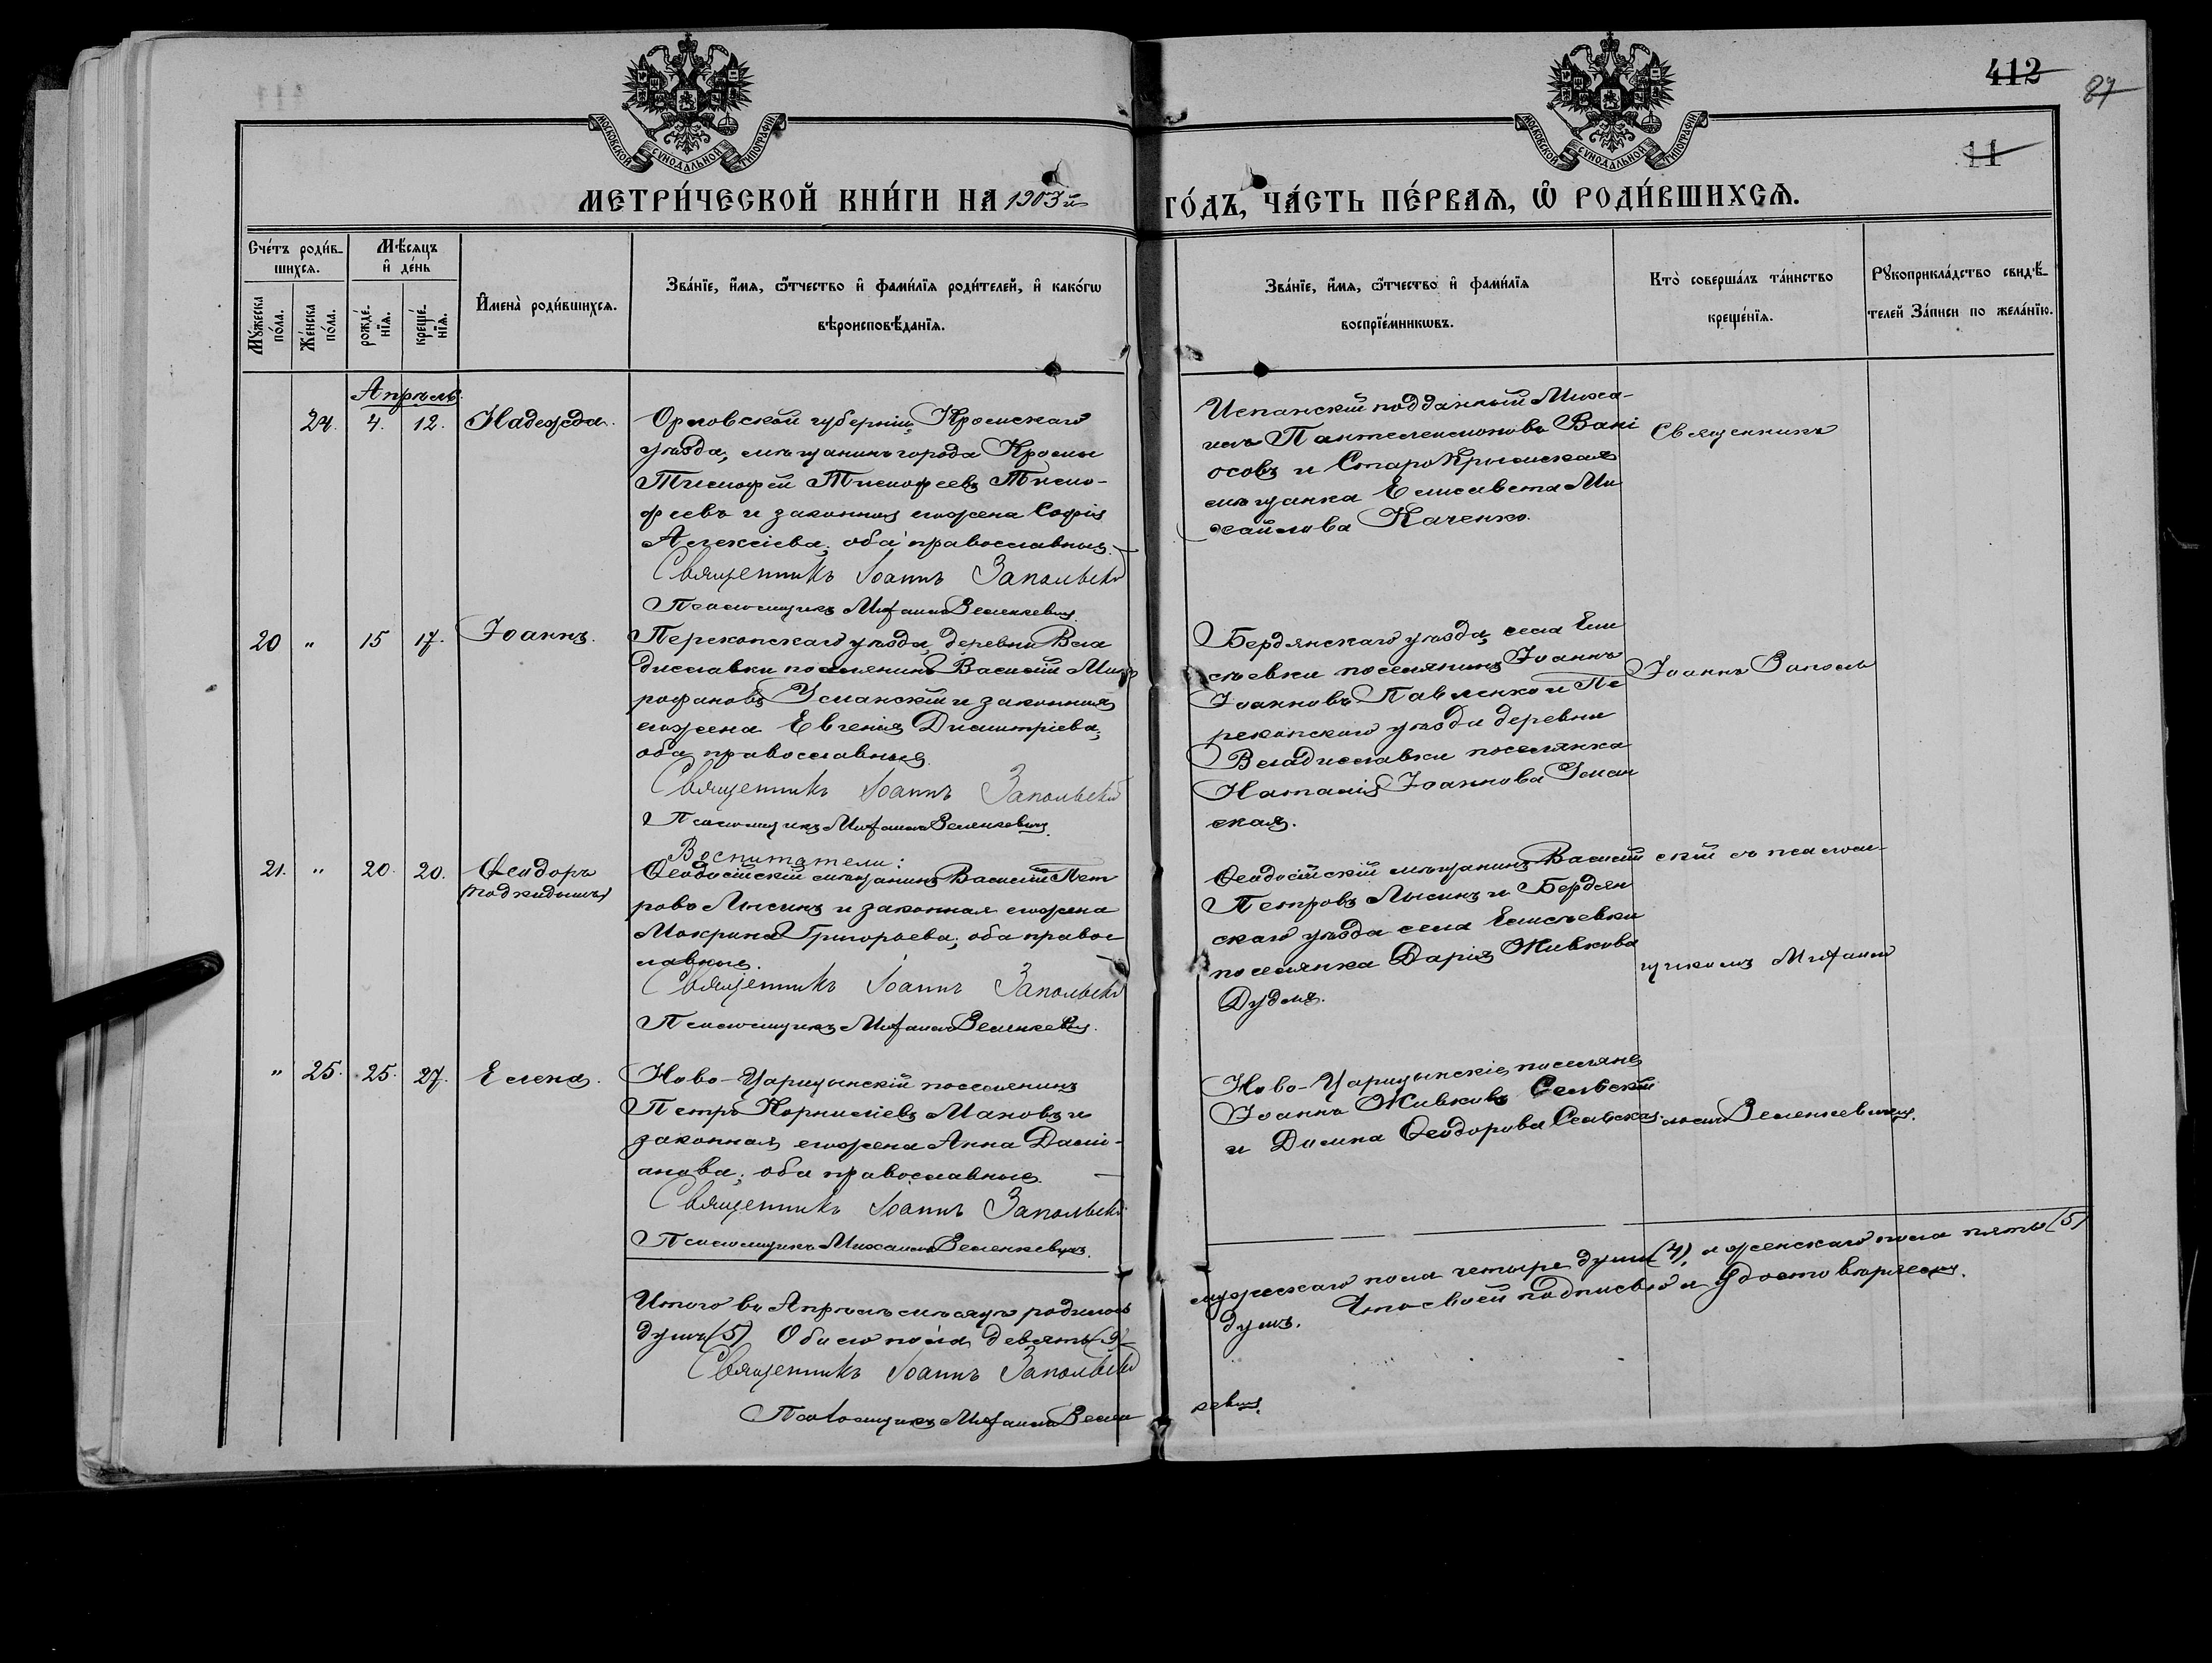 412
87
11
МОСКОВСКОЙ СѴНОДАЛЬНОЙ ТИПОГРАФІИ
МОСКОВСКОЙ СѴНОДАЛЬНОЙ ТИПОГРАФІИ
МЕТРИ́ЧЕСКОЙ КНИ́ГИ НА 1903й ГО́ДЪ, ЧА́СТЬ ПЕ́РВАѦ, Ѡ҆ РОДИ́ВШИХСѦ.
Сче́тъ роди́в-
шихсѧ.
Мꙋ́жеска
по́ла.
Же́нска
по́ла.
Мѣ́сѧцъ
и҆ де́нь
рожде́-
нїѧ.
креще́-
нїѧ.
И҆мена̀ роди́вшихсѧ.
Зва́нїе, и҆́мѧ, ѻ҆́тчество и҆ фами́лїѧ роди́телей, и҆ како́гѡ
вѣроисповѣ́данїѧ.
Зва́нїе, и҆́мѧ, ѻ҆́тчество и҆ фами́лїѧ
воспрїе́мникѡвъ.
Кто̀ соверша́лъ та́инство
креще́нїѧ.
Рꙋкоприкла́дство свидѣ́-
телей За́писи по жела́нїю.
Апрѣль.
24. 4. 12. Надежда.
Орловской губерніи, Кромскаго
уѣзда, мѣщанинъ города Кромы
Тимофей Тимофеевъ Тимо-
феевъ и законная его жена Софія
Алексіева, оба православные.
Священникъ Іоаннъ Запольскій
Псаломщикъ Михаилъ Веленкевичъ.
Испанскій подданный Миха-
илъ Пантелеимоновъ Вані
осовъ и Старо Крымская
мѣщанка Елисавета Ми
хайлова Каченко.
Священникъ
20 " 15 17. Іоаннъ.
Перекопскаго уѣзда, деревни Вла
диславки поселянинъ Василій Мит
рофановъ Уманскій и законная
его жена Евгенія Димитріева,
оба православные.
Священникъ Іоаннъ Запольскій
Псаломщикъ Михаилъ Веленкевичъ.
Бердянскаго уѣзда, села Ели
сѣевки поселянинъ Іоаннъ
Іоанновъ Павленко и Пе
рекопскаго уѣзда деревни
Владиславки поселянка
Наталія Іоаннова Уман
ская.
Іоаннъ Заполь
21. " 20. 20. Ѳеодоръ
(подкидышъ)
Воспитатели:
Ѳеодосійскій мѣщанинъ Василій Пет
ровъ Лысинъ и законная его жена
Макрина Григорьева, оба правос
лавные.
Священникъ Іоаннъ Запольскій
Псаломщикъ Михаилъ Веленкевичъ.
Ѳеодосійскій мѣщанинъ Василій
Петровъ Лысинъ и Бердян
скаго уѣзда села Елисѣевки
поселянка Дарія Живкова
Дудля.
скій съ псалом-
щикомъ Михаи
" 25. 25. 27. Елена.
Ново-Царицынскій поселянинъ
Петръ Корниліевъ Мановъ и
законная его жена Анна Дамі-
анова, оба православные.
Священникъ Іоаннъ Запольскій
Псаломщикъ Михаилъ Веленкевичъ.
Ново-Царицынскіе поселяне
Іоаннъ Живковъ Сельскій
и Домна Ѳеодорова Сельская.
ломъ Веленкевичемъ.
Итого въ Апрѣлѣ мѣсяцѣ родилось мужескаго пола четыре души (4), и женскаго пола пять (5)
душъ (5) Обоего пола девять (9) душъ. Что своей подписью и удостовѣряемъ.
Священникъ Іоаннъ Запольскій
Псаломщикъ Михаилъ Велен кевичъ.